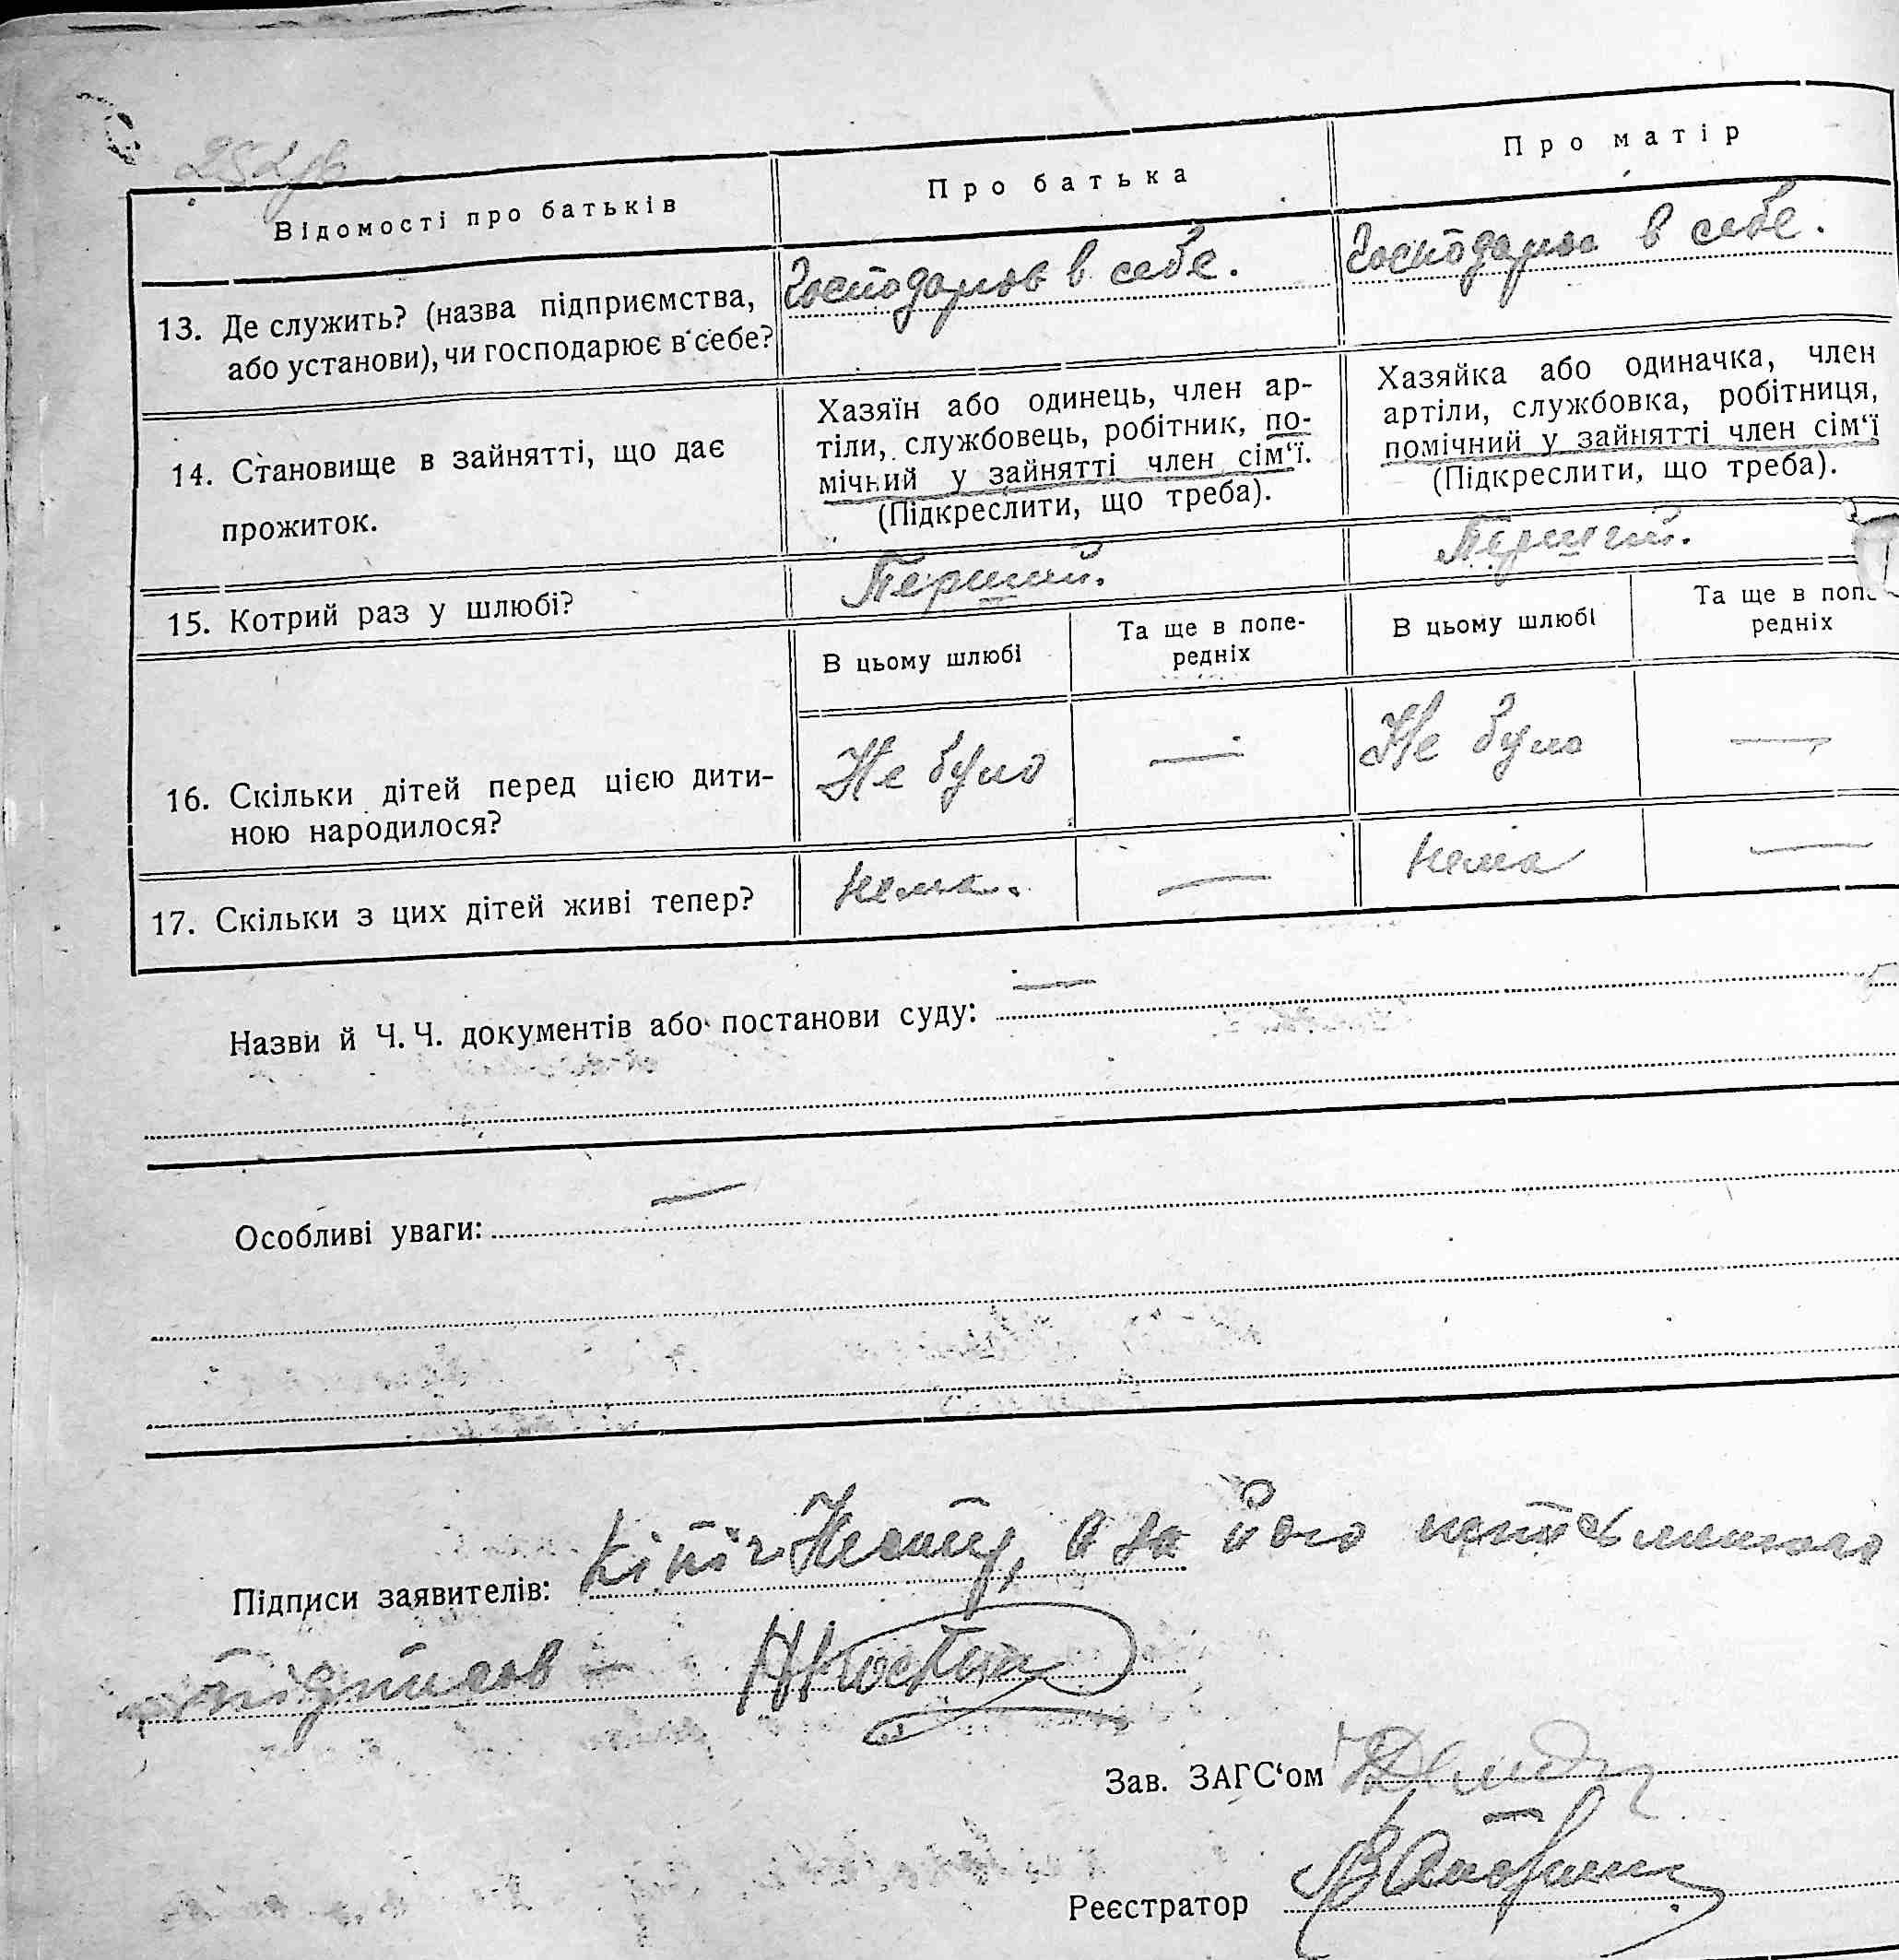 252
Відомості про батьків
Про батька
Про матір
13. Де служить? (назва підприємства,
або установи), чи господарює в себе?
Господарює в себе.
Господарює в себе.
14. Становище в зайнятті, що дає
прожиток.
Хазяїн або одинець, член ар-
тіли, службовець, робітник, по-
мічний у зайнятті член сім‘ї.
(Підкреслити, що треба).
Хазяйка або одиначка, член
артіли, службовка, робітниця,
помічний у зайнятті член сім‘ї
(Підкреслити, що треба).
15. Котрий раз у шлюбі?
Перший.
Перший.
В цьому шлюбі
Та ще в попе-
редніх
В цьому шлюбі
Та ще в попе
редніх
16. Скільки дітей перед цією дити-
ною народилося?
Не було
—
Не було
—
17. Скільки з цих дітей живі тепер?
Нема.
—
Нема
—
Назви й Ч. Ч. документів або постанови суду: —
Особливі уваги: —
Підписи заявителів: а за його неписьменного
підписав —
Зав. ЗАГС‘ом
Реєстратор